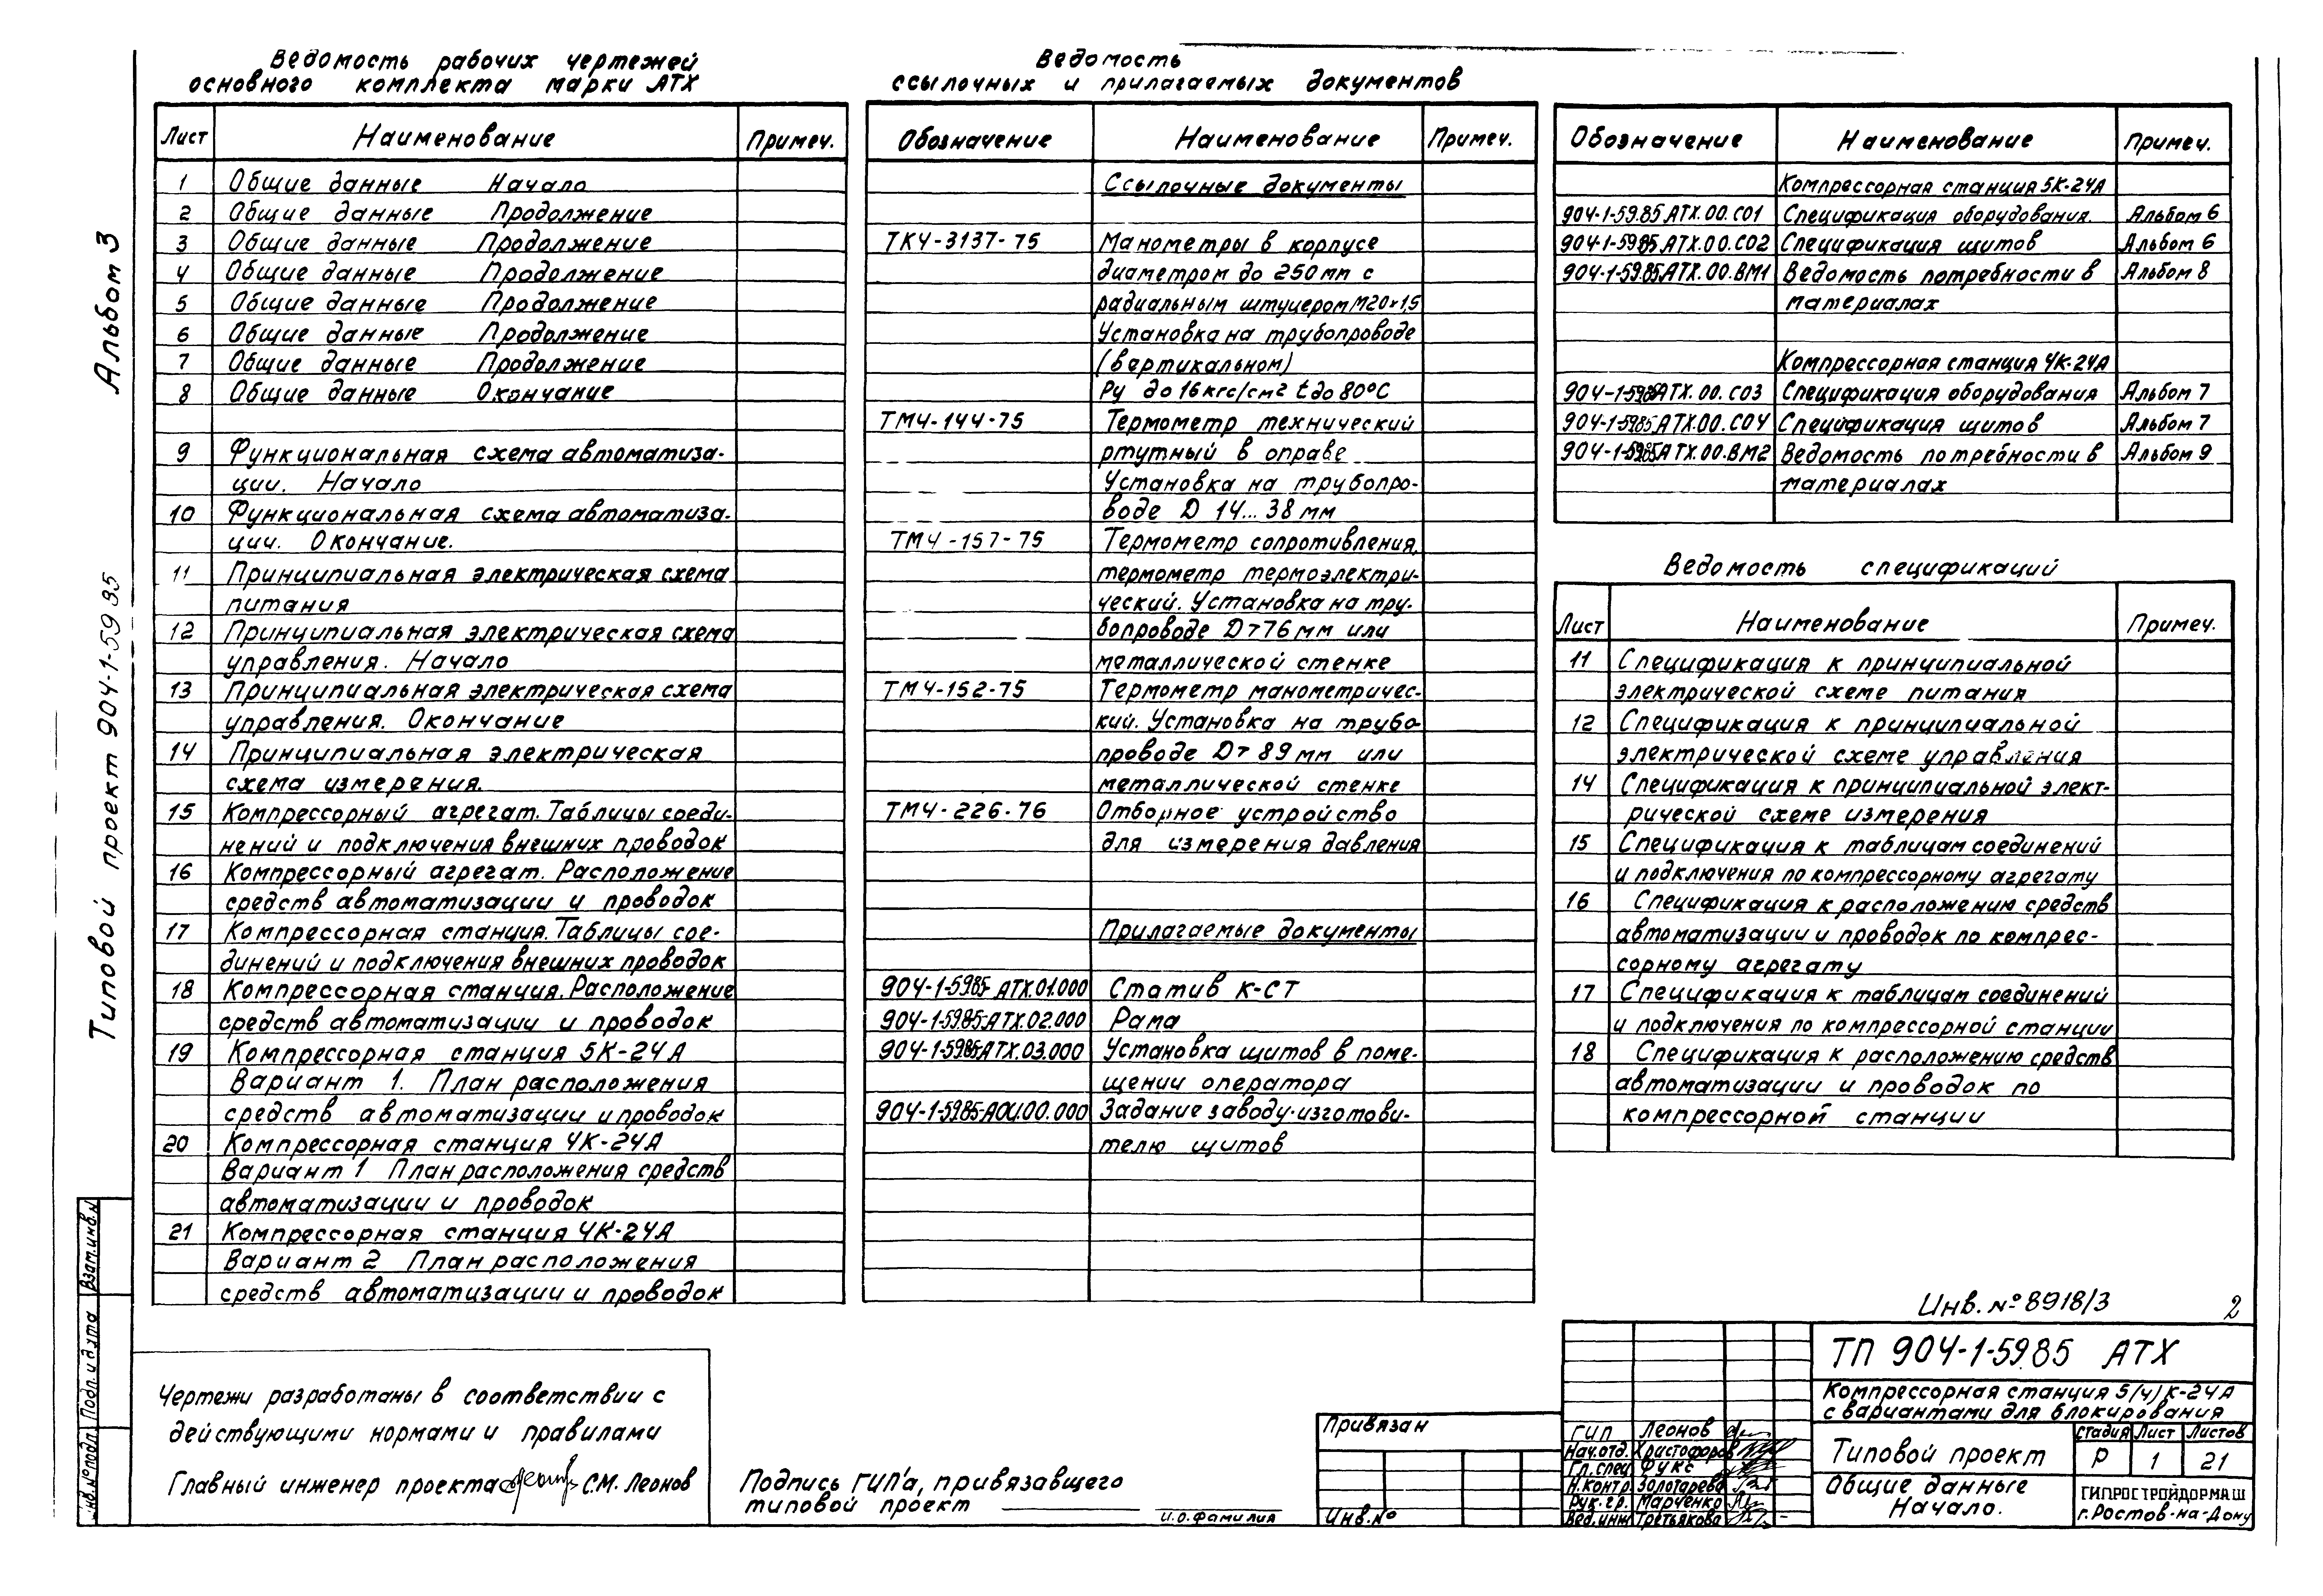 Альбом 3
Типовой проект 904-1-59 85
Взам.инв.N
Подп. и дата
Инв.№подл.
Ведомость рабочих чертежей
основного комплекта марки АТХ
Лист Наименование Примеч.
1 Общие данные Начало
2 Общие данные Продолжение
3 Общие данные Продолжение
4 Общие данные Продолжение
5 Общие данные Продолжение
6 Общие данные Продолжение
7 Общие данные Продолжение
8 Общие данные Окончание
9 Функциональная схема автоматиза-
ции. Начало
10 Функциональная схема автоматиза-
ции. Окончание.
11 Принципиальная электрическая схема
питания
12 Принципиальная электрическая схема
управления. Начало
13 Принципиальная электрическая схема
управления. Окончание
14 Принципиальная электрическая
схема измерения.
15 Компрессорный агрегат. Таблицы соеди-
нений и подключения внешних проводок
16 Компрессорный агрегат. Расположение
средств автоматизации и проводок
17 Компрессорная станция. Таблицы сое-
динений и подключения внешних проводок
18 Компрессорная станция. Расположение
средств автоматизации и проводок
19 Компрессорная станция 5К-24А
Вариант 1. План расположения
средств автоматизации и проводок
20 Компрессорная станция 4К-24А
Вариант 1 План расположения средств
автоматизации и проводок
21 Компрессорная станция 4К-24А
Вариант 2 План расположения
средств автоматизации и проводок
Ведомость
ссылочных и прилагаемых документов
Обозначение Наименование Примеч.
Ссылочные документы
ТК4-3137-75 Манометры в корпусе
диаметром до 250мм с
радиальным штуцером М20×1,5
Установка на трубопроводе
(вертикальном)
Ру до 16кгс/см² t до 80°С
ТМ4-144-75 Термометр технический
ртутный в оправе
Установка на трубопро-
воде D 14...38 мм
ТМ4-157-75 Термометр сопротивления,
термометр термоэлектри-
ческий. Установка на тру-
бопроводе D>76 мм или
металлической стенке
ТМ4-152-75 Термометр манометричес-
кий. Установка на трубо-
проводе D> 89 мм или
металлической стенке
ТМ4-226-76 Отборное устройство
для измерения давления
Прилагаемые документы
904-1-59.85 АТХ.01.000 Статив К-СТ
904-1-59.85 АТХ.02.000 Рама
904-1-59.85 АТХ.03.000 Установка щитов в поме-
щении оператора
904-1-59.85-АОИ.00.000 Задание заводу-изготови-
телю щитов
Обозначение Наименование Примеч.
Компрессорная станция 5К-24А
904-1-59.85 АТХ.00.С01 Спецификация оборудования. Альбом 6
904-1-59.85 АТХ.00.С02 Спецификация щитов Альбом 6
904-1-59.85 АТХ.00.ВМ1 Ведомость потребности в Альбом 8
материалах
Компрессорная станция 4К-24А
904-1-59.85 АТХ.00.С03 Спецификация оборудования Альбом 7
904-1-59.85 АТХ.00.С04 Спецификация щитов Альбом 7
904-1-59.85 АТХ.00.ВМ2 Ведомость потребности в Альбом 9
материалах
Ведомость спецификаций
Лист Наименование Примеч.
11 Спецификация к принципиальной
электрической схеме питания
12 Спецификация к принципиальной
электрической схеме управления
14 Спецификация к принципиальной элект-
рической схеме измерения
15 Спецификация к таблицам соединений
и подключения по компрессорному агрегату
16 Спецификация к расположению средств
автоматизации и проводок по компрес-
сорному агрегату
17 Спецификация к таблицам соединений
и подключения по компрессорной станции
18 Спецификация к расположению средств
автоматизации и проводок по
компрессорной станции
Чертежи разработаны в соответствии с
действующими нормами и правилами
Главный инженер проекта С.М. Леонов
Подпись ГИП'а, привязавшего
типовой проект
И.О.Фамилия
Привязан
Инв.№
Инв. № 8918/3 2
ТП 904-1-59.85 АТХ
Компрессорная станция 5(4)К-24А
с вариантами для блокирования
ГИП Леонов
Нач.отд. Христофоров
Гл.спец. Фукс
Н.контр. Золотарева
Рук.гр. Марченко
Вед.инж Третьякова
Типовой проект
Стадия Лист Листов
Р 1 21
Общие данные
Начало.
ГИПРОСТРОЙДОРМАШ
г.Ростов-на-Дону